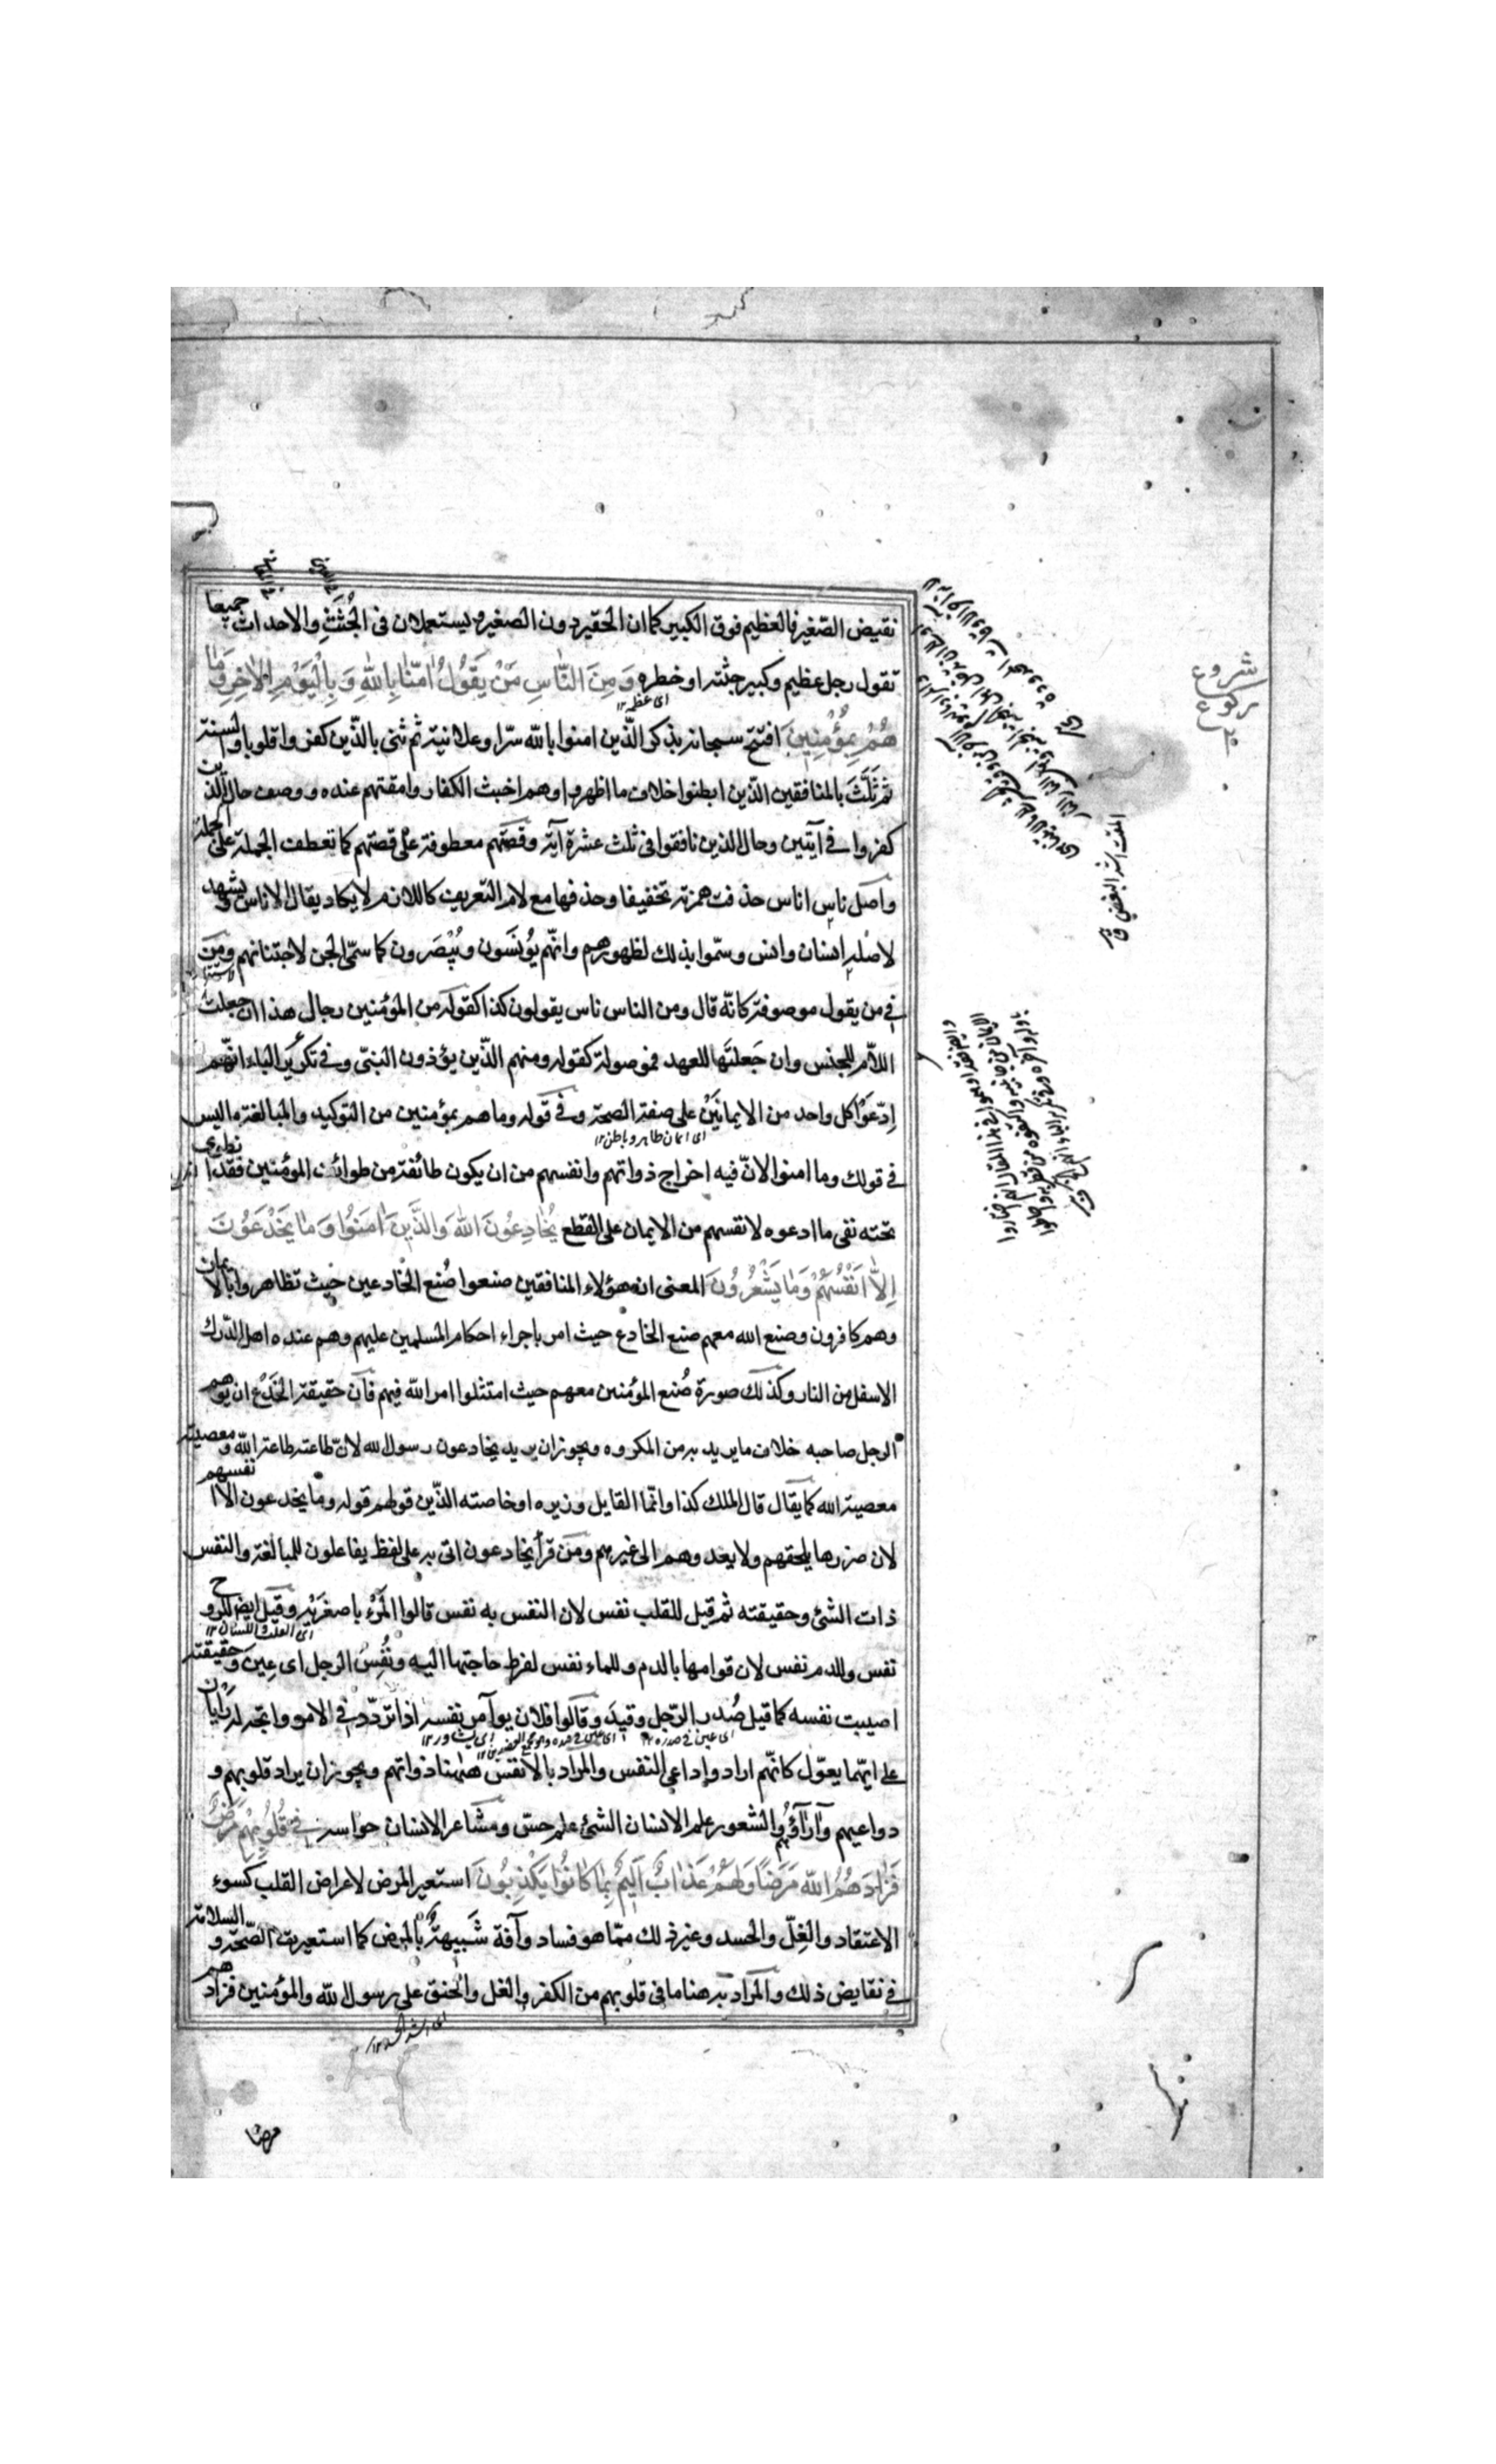 نقيض الصّغير فالعظيم فوق الكبير كما ان الحقير دون الصغير ويستعملان فى الجُثَثِ والاحداث جميعا
تقول رجل عظيم وكبير جثته او خطره وَمِنَ النَّاسِ مَنْ يَقُولُ اٰمَنَّا بِاللّٰهِ وَبِالْيَوْمِ الْاٰخِرِ وَمَا
هُمْ بِمُؤْمِنِينَ افتتح سبحانه بذكر الّذين امنوا بالله سرّا وعلانية ثم ثنى بالّذين كفروا قلوبا والسنة
ثم ثَلَّثَ بالمنافقين الذّين ابطنوا خلاف ما اظهروا وهم اخبث الكفار وامقتهم عنده ووصف حال الّذين
كفروا فى آيتين وحال الذين نافقوا فى ثلث عشرة آية وقصّتهم معطوفة على قصتهم كما تعطف الجملة على الجملة
واصل ناس اناس حذفت همزته تخفيفا وحذفها مع لام التعريف كاللازم لا يكاد يقال الاناس ويشهد
لاصله انسان وانس وسمّوا بذلك لظهورهم وانّهم يُونَسون ويُبْصَرون كما سمّى الجن لاجتنانهم ومَن
فى من يقول موصوفة كانّه قال ومن الناس ناس يقولون كذا كقوله من المؤمنين رجال هذا ان جعلت
اللاّم للجنس وان جَعلتَها للعهد فموصولة كقوله ومنهم الذّين يؤذون النبىّ وفى تكرير الباء انّهم
اِدّعَوْا كل واحد من الايمانَيْن على صفة الصحة وفى قوله وما هم بمؤمنين من التوكيد والمبالغة ما ليس
فى قولك وما امنوا لانّ فيه اخراج ذواتهم وانفسهم من ان يكون طائفة من طوائف المؤمنين فقد انطوى
تحته نفى ما ادعوه لانفسهم من الايمان على القطع يُخَادِعُونَ اللهَ وَالَّذِينَ اٰمَنُوا وَمَا يَخْدَعُونَ
اِلاَّ اَنْفُسَهُمْ وَمَا يَشْعُرُونَ المعنى ان هؤلاء المنافقين صنعوا صُنع الخادعين حيث تظاهروا بالايمان
وهم كافرون وصنع الله معهم صنع الخادع حيث امر باجراء احكام المسلمين عليهم وهم عنده اهل الدّرك
الاسفل من النار وكذلك صورة صُنع المؤمنين معهم حيث امتثلوا امر الله فيهم فانّ حقيقة الخَدْع ان يوهم
الرجل صاحبه خلاف ما يريد به من المكروه ويجوز ان يريد يخادعون رسول الله لانّ طاعته طاعة الله ومعصيته
معصية الله كما يقال قال الملك كذا وانّما القايل وزيره او خاصته الذّين قولهم قوله وما يخدعون الا انفسهم
لان ضررها يلحقهم ولا يعدوهم الى غيرهم ومَن قرأ يخادعون اتى به على لفظ يفاعلون للمبالغة والنفس
ذات الشئ وحقيقته ثم قيل للقلب نفس لان النفس به نفس قالوا المَرْءُ باصغرَيْه وقيل ايضا للروح
نفس وللدم نفس لان قوامها بالدم وللماء نفس لفرط حاجتها اليه ونُفِسَ الرجل اى عِينَ وحقيقته
اصيبت نفسه كما قيل صُدر الرّجل وقالوا فلان يوآمر نفسه اذا تردّد فى الامر واتجه له رَأيان
على ايّهما يعوّل كانّهم ارادوا داعى النفس والمراد بالانفس هٰهنا ذواتهم ويجوز ان يراد قلوبهم و
دواعيهم وآراؤهم والشعور علم الانسان الشئ علم حسّ ومشاعر الانسان حواسه فِى قُلُوبِهِمْ مَرَضٌ
فَزَادَهُمُ اللهُ مَرَضًا وَلَهُمْ عَذَابٌ اَلِيمٌ بِمَا كَانُوا يَكْذِبُونَ استعير المرض لاعراض القلب كسوء
الاعتقاد والغِلّ والحسد وغير ذلك ممّا هو فساد وآفة شَبِيهَةٌ بالمرض كما استعيرت الصّحّة والسلامة
فى نقايض ذلك والمراد به هنا ما فى قلوبهم من الكفر والغل والحنق على رسول الله والمؤمنين فزادهم
مرضا
شروع
ركوع
٢
اى عظمه ١٢
اى ايمان ظاهر وباطن ١٢
اى القلب واللسان ١٢
المقت اشد البغض ق